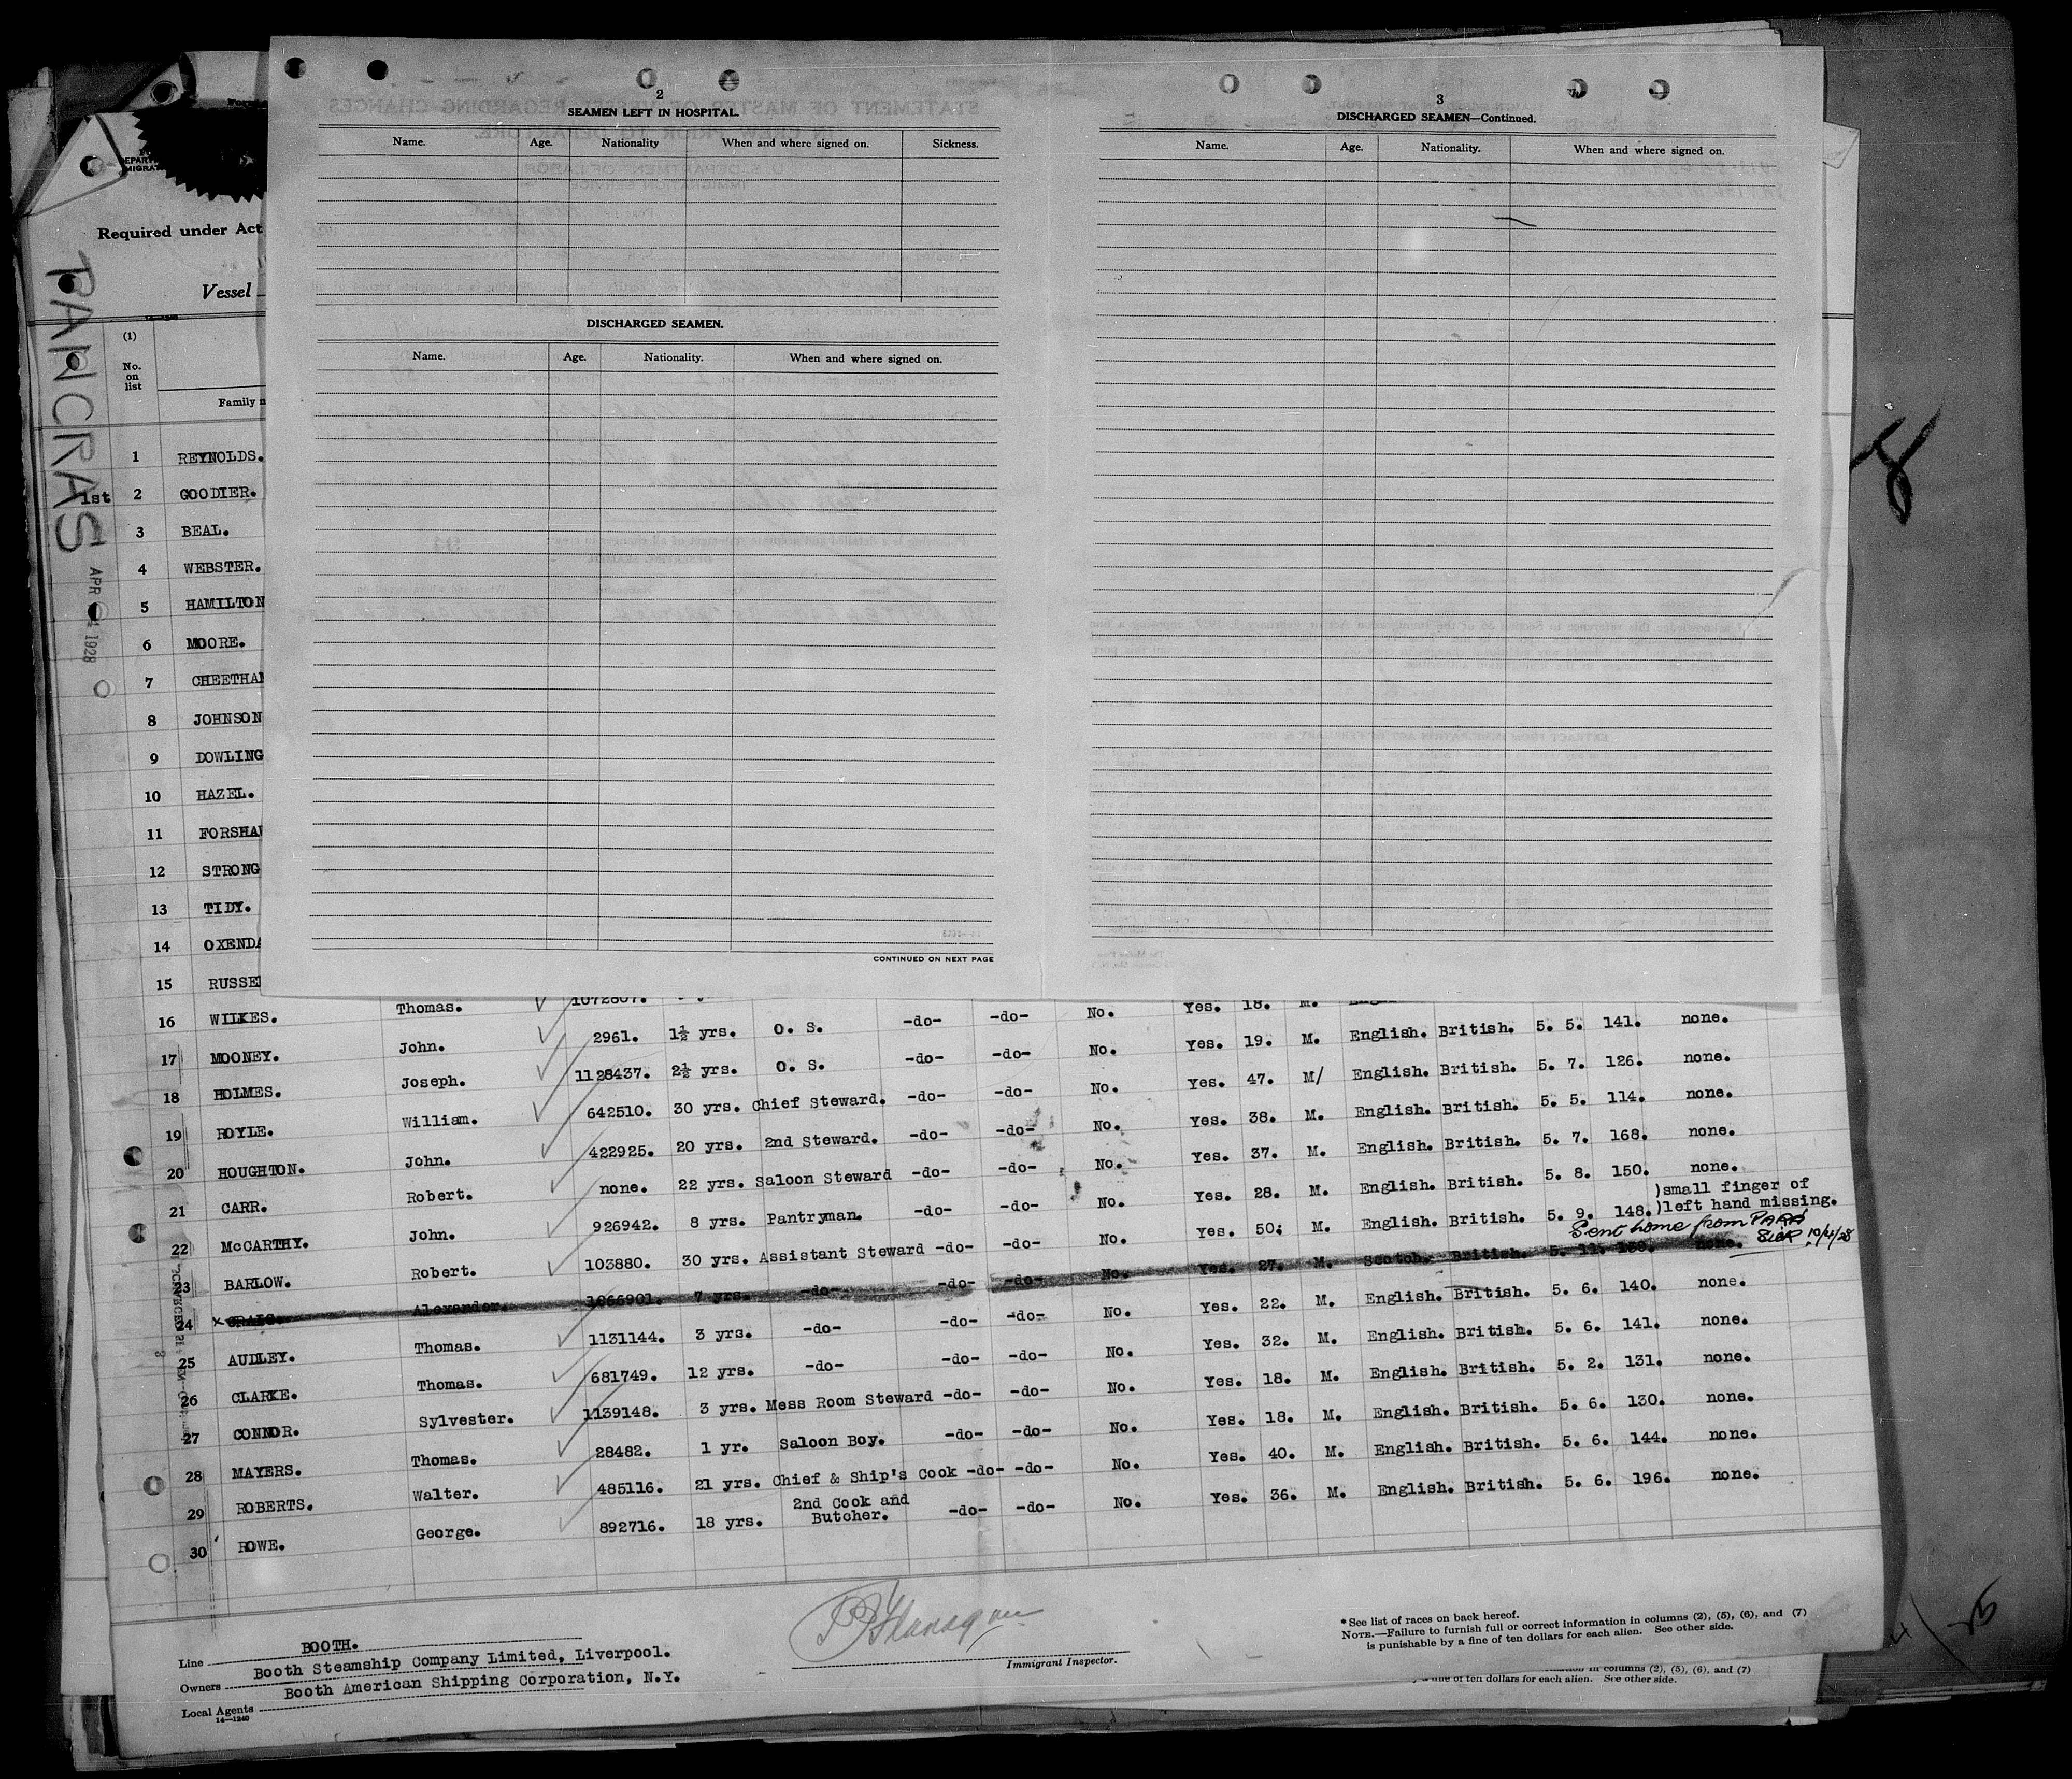 2
SEAMEN LEFT IN HOSPITAL.
Name. Age. Nationality When and where signed on. Sickness.
DISCHARGED SEAMEN.
Name. Age. Nationality. When and where signed on.
CONTINUED ON NEXT PAGE
3
DISCHARGED SEAMEN—Continued.
Name. Age. Nationality. When and where signed on.
Required under Act
Vessel
PANCRAS
APR 1928
(1)
No. on list
Family
1 REYNOLDS.
1st 2 GOODIER.
3 BEAL.
4 WEBSTER.
5 HAMILTON
6 MOORE.
7 CHEETHA
8 JOHNSON
9 DOWLING
10 HAZEL.
11 FORSHA
12 STRONG
13 TIDY.
14 OXENDA
15 RUSSE
16 WILKES. Thomas. 1072807.
17 MOONEY. John. 2961. 1½ yrs. O. S. -do- -do- No. Yes. 18. M.
18 HOLMES. Joseph. 1128437. 2½ yrs. O. S. -do- -do- No. Yes. 19. M. English. British. 5. 5. 141. none.
19 ROYLE. William. 642510. 30 yrs. Chief Steward. -do- -do- No. Yes. 47. M/ English. British. 5. 7. 126. none.
20 HOUGHTON. John. 422925. 20 yrs. 2nd Steward. -do- -do- No. Yes. 38. M. English. British. 5. 5. 114. none.
21 CARR. Robert. none. 22 yrs. Saloon Steward -do- -do- No. Yes. 37. M. English. British. 5. 7. 168. none.
22 McCARTHY. John. 926942. 8 yrs. Pantryman. -do- -do- No. Yes. 28. M. English. British. 5. 8. 150. none.
23 BARLOW. Robert. 103880. 30 yrs. Assistant Steward -do- -do- No. Yes. 50; M. English. British. 5. 9. 148. )small finger of
)left hand missing.
Sent home from PARA
Sick 10/4/28
24 x CRAIG. Alexander. 1066901. 7 yrs. -do- -do- -do- No. Yes. 27. M. Scotch. British. 5. 11. none.
25 AUDLEY. Thomas. 1131144. 3 yrs. -do- -do- -do- No. Yes. 22. M. English. British. 5. 6. 140. none.
26 CLARKE. Thomas. 681749. 12 yrs. -do- -do- -do- No. Yes. 32. M. English. British. 5. 6. 141. none.
27 CONNOR. Sylvester. 1139148. 3 yrs. Mess Room Steward -do- -do- No. Yes. 18. M. English. British. 5. 2. 131. none.
28 MAYERS. Thomas. 28482. 1 yr. Saloon Boy. -do- -do- No. Yes. 18. M. English. British. 5. 6. 130. none.
29 ROBERTS. Walter. 485116. 21 yrs. Chief & Ship's Cook -do- -do- No. Yes. 40. M. English. British. 5. 6. 144. none.
30 ROWE. George. 892716. 18 yrs. 2nd Cook and Butcher. -do- -do- No. Yes. 36. M. English. British. 5. 6. 196. none.
Line BOOTH.
Owners Booth Steamship Company Limited, Liverpool.
Local Agents Booth American Shipping Corporation, N.Y.
14—1240
Immigrant Inspector.
* See list of races on back hereof.
NOTE.—Failure to furnish full or correct information in columns (2), (5), (6), and (7)
is punishable by a fine of ten dollars for each alien. See other side.
in columns (2), (5), (6), and (7)
fine of ten dollars for each alien. See other side.